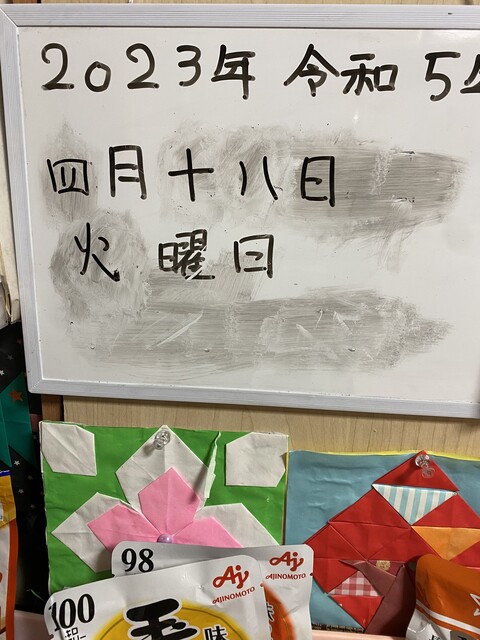 2023年 令和5年
四月十八日
火曜日
98
Aj
AJINOMOTO
100
Aj
AJINOMOTO
味